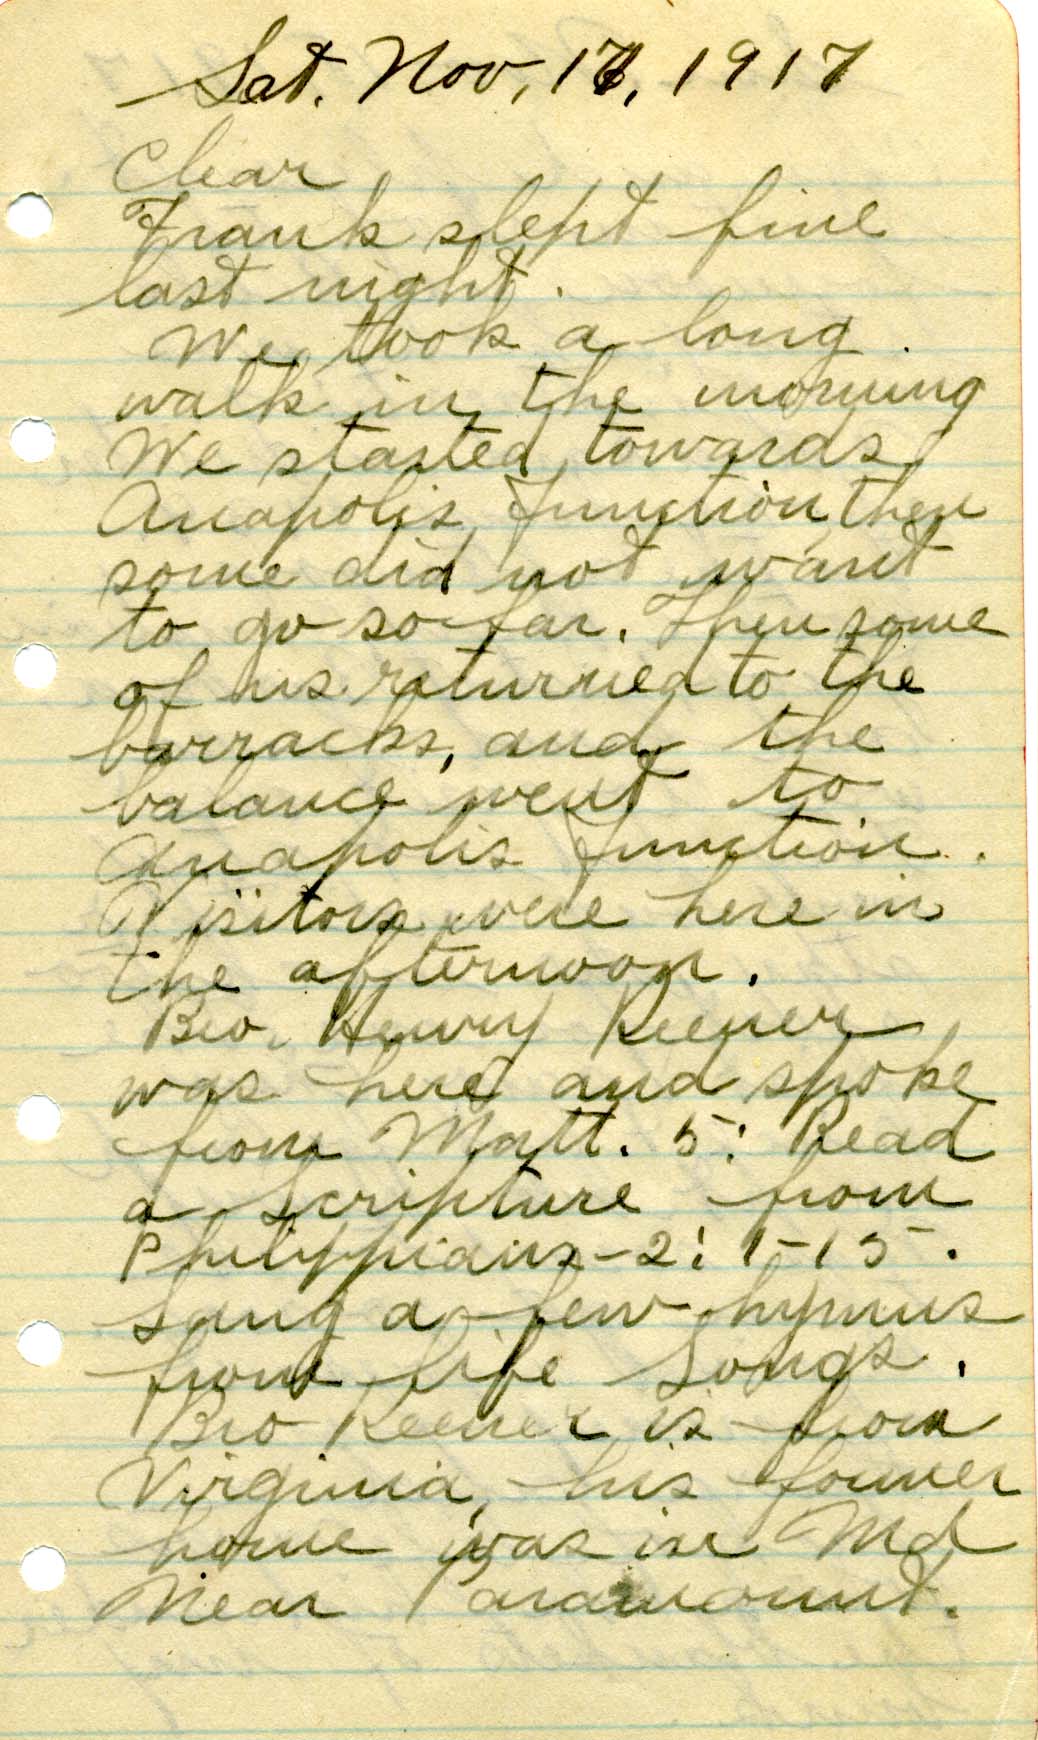 Sat. Nov, 17, 1917
Clear
Frank slept fine
last night.
We took a long
walk in the morning
We started towards
Anapolis Junction, then
some did not want
to go so far. Then some
of us returned to the
barracks, and the
balance went to
Anapolis Junction.
Visitors were here in
the afternoon.
Bro. Henry Keener
was here and spoke
from Matt. 5: Read
a Scripture from
Philippians-2: 1-15.
Sang a few hymns
from Life Songs.
Bro Keener is from
Virginia, his former
home was in Md
Near Paramount.